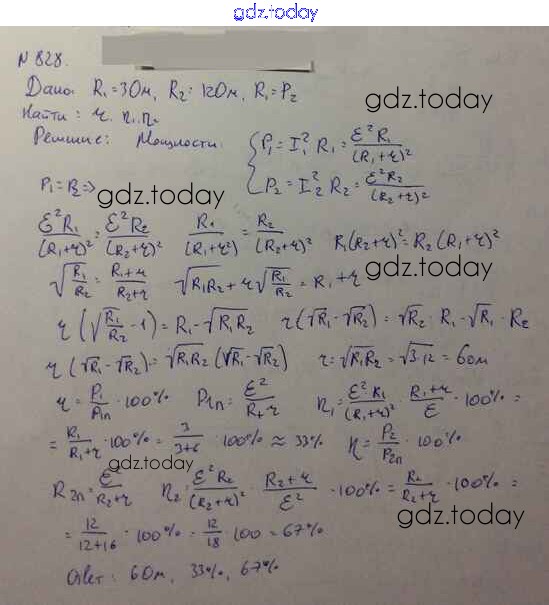 gdz.today
N 828.
Дано: R₁=3Ом, R₂=12Ом, R₁=P₂
gdz.today
Найти: r, η₁, η₂
Решение: Мощности: P₁=I₁²R₁=ℰ²R₁/(R₁+r)²
P₂=I₂²R₂=ℰ²R₂/(R₂+r)²
P₁=P₂=>
gdz.today
ℰ²R₁/(R₁+r)²=ℰ²R₂/(R₂+r)² R₁/(R₁+r²)=R₂/(R₂+r)² R₁(R₂+r)²=R₂(R₁+r)²
√R₁/R₂=R₁+r/R₂+r √R₁R₂+r√R₁/R₂=R₁+r gdz.today
r(√R₁/R₂-1)=R₁-√R₁R₂ r(√R₁-√R₂)=√R₂·R₁-√R₁·R₂
r(√R₁-√R₂)=√R₁R₂(√R₁-√R₂) r=√R₁R₂=√3·12=6Ом
η=P₁/P₁п·100% P₁п=ℰ²/R+r η₁=ℰ²R₁/(R₁+r)²·R₁+r/ℰ·100%=
=R₁/R₁+r·100%=3/3+6·100%≈33% η=P₂/P₂п·100%
gdz.today
R₂п=ℰ²/R₂+r η₂=ℰ²R₂/(R₂+r)²·R₂+r/ℰ²·100%=R₂/R₂+r·100%=
gdz.today
=12/12+16·100%=12/18·100=67%
Ответ: 6Ом, 33%, 67%